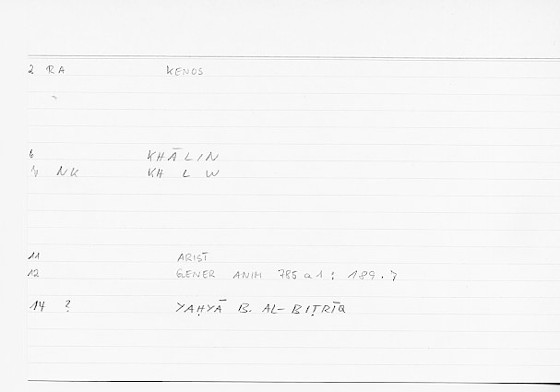 2 RA KENOS
6 KHĀLIN
NK KH L W
11 ARIST
12 GENER ANIM 785 a 1 : 189.7
14 ? YAḤYĀ B. AL-BIṬRĪQ